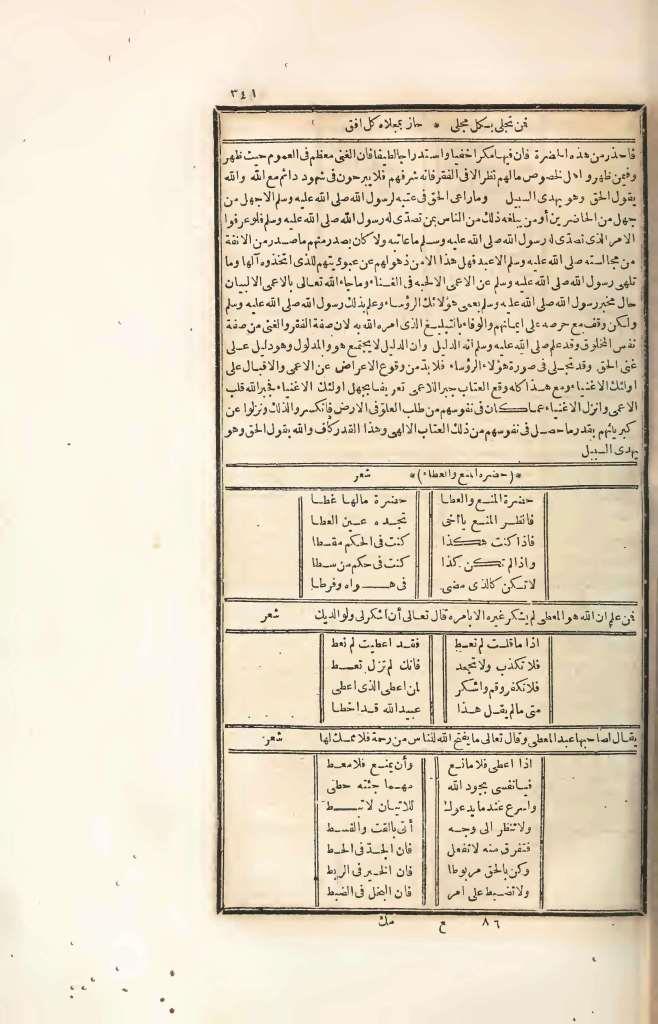 ٣٤١
فمن تجلى بكل مجلى * حاز بمعلاه كل افق
فاحذر من هذه الحضرة فان فيها مكرا خفيا واستدراجا لطيفا فان الغنى معظم فى العموم حيث ظهر
وفيمن ظهر واهل الخصوص مالهم نظر الا فى الفقر فانه شرفهم فلا يبرحون فى شهود دائم مع الله والله
يقول الحق وهو يهدى السبيل وما راعى الحق فى عتبه لرسول الله صلى الله عليه وسلم الا جهل من
جهل من الحاضرين أو من يبلغه ذلك من الناس بمن تصدى له رسول الله صلى الله عليه وسلم فلو عرفوا
الامر الذى تصدى له رسول الله صلى الله عليه وسلم ما عاتبه ولا كان يصدر منهم ما صدر من الانفة
من مجالسته صلى الله عليه وسلم الاعبد فهل هذا الا من ذهولهم عن عبوديتهم للذى اتخذوه الها وما
تلهى رسول الله صلى الله عليه وسلم عن الاعمى الا لحبه فى الفناء وما جاء الله تعالى بالاعمى الا لبيان
حال مخبر رسول الله صلى الله عليه وسلم بعمى هؤلائك الرؤساء وعلم بذلك رسول الله صلى الله عليه وسلم
ولكن وقف مع حرصه على ايمانهم والوفاء بالتبليغ الذى امره الله به لان صفة الفقر والغنى من صفة
نفس المخلوق وقد علم صلى الله عليه وسلم أنه الدليل وان الدليل لا يجتمع هو والمدلول وهو دليل على
غنى الحق وقد تجلى فى صورة هؤلاء الرؤساء فلا بد من وقوع الاعراض عن الاعمى والاقبال على
اولئك الاغنياء ومع هذا كله وقع العتاب جبرا للاعمى تعريفا بجهل اولئك الاغنياء فجبر الله قلب
الاعمى وانزل الاغنياء عما كان فى نفوسهم من طلب العلو فى الارض فانكسروا لذلك ونزلوا عن
كبريائهم بقدر ما حصل فى نفوسهم من ذلك العتاب الالهى وهذا القدر كاف والله يقول الحق وهو
يهدى السبيل
*(حضرة المنع والعطاء)* شعر
حضرة المنع والعطا حضرة مالها غطا
فانظر المنع يا أخى تجده عين العطا
فاذا كنت هكذا كنت فى الحكم مقسطا
واذا لم تكن كذا كنت فى حكم من سطا
لا تكن كالذى مضى فى هواه وفرطا
فمن علم ان الله هو المعطى لم يشكر غيره الا بامره قال تعالى أن اشكر لى ولوالديك شعر
اذا ما قلت لم نعط فقد اعطيت لم نعط
فلا تكذب ولا تجحد فانك لم تزل تعط
فلا تكفر وقم واشكر لمن اعطى الذى اعطى
متى ما لم يقل هذا عبيد الله قد اخطا
يقال لصاحبها عبد المعطى وقال تعالى ما يفتح الله للناس من رحمة فلا ممسك لها شعر
اذا اعطى فلا مانع وأن يمنع فلا معط
فيا نفسى بجود الله مهما جئته حطى
واسرع عندما يدعوك للاتيان لا تبط
ولا تنظر الى وجه أتى بالقت والقسط
فتفرق منه لا تفعل فان الجد فى الحط
وكن بالحق مربوطا فان الخير فى الربط
ولا تضبط على امر فان البخل فى الضبط
٨٦ ع مك